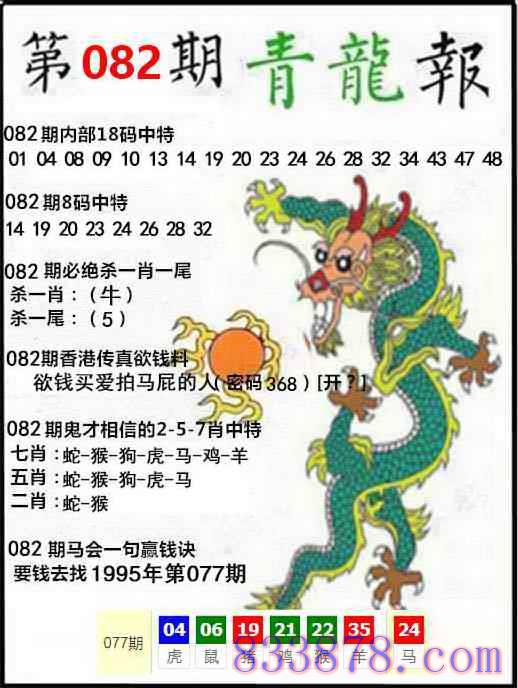 第082期 青龍報
082期内部18码中特
01 04 08 09 10 13 14 19 20 23 24 26 28 32 34 43 47 48
082期8码中特
14 19 20 23 24 26 28 32
082 期必绝杀一肖一尾
杀一肖：（牛）
杀一尾：（5）
082期香港传真欲钱料
欲钱买爱拍马屁的人(密码368)[开？]
082期鬼才相信的2-5-7肖中特
七肖：蛇-猴-狗-虎-马-鸡-羊
五肖：蛇-猴-狗-虎-马
二肖：蛇-猴
082 期马会一句赢钱诀
要钱去找1995年第077期
077期 04 06 19 21 22 35 24
虎 鼠 猪 鸡 猴 羊 马
833878.com